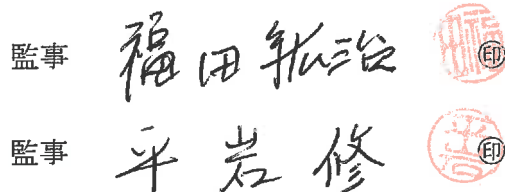 監事 福田紘治 ㊞
監事 平岩修 ㊞